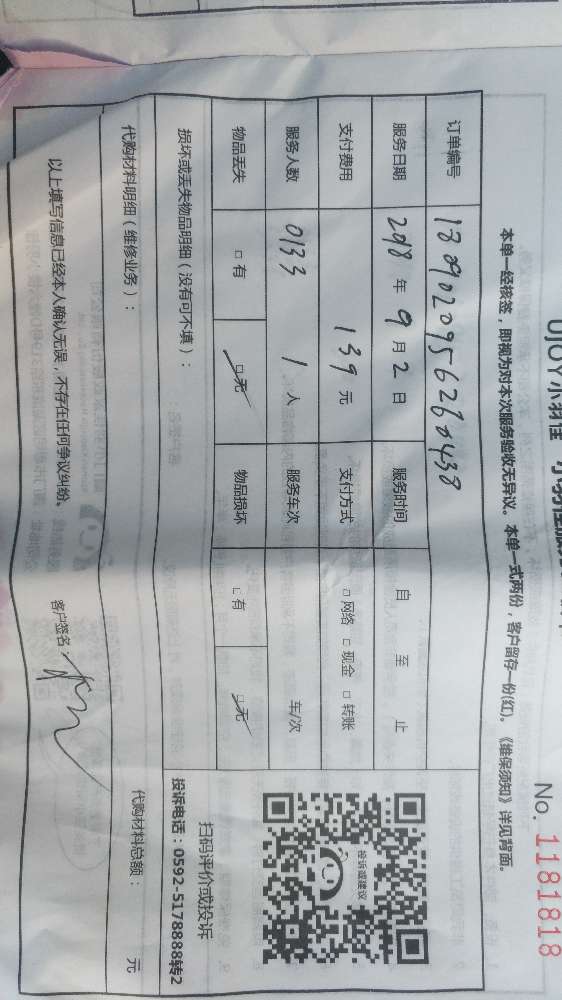 UJOY小羽佳
No. 1181818
本单一经核签，即视为对本次服务验收无异议。本单一式两份，客户留存一份(红)。《维保须知》详见背面。
订单编号
服务日期 2018 年 9 月 2 日 服务时间 自 至 止
支付费用 139 元 支付方式 □ 网络 □ 现金 □ 转账
服务人数 0133 1 人 服务车次 车/次
物品丢失 □ 有 □ 无 物品损坏 □ 有 □ 无
扫码评价或投诉
投诉电话：0592-5178888转2
投诉或建议
损坏或丢失物品明细（没有可不填）：
代购材料明细（维修业务）： 代购材料总额： 元
以上填写信息已经本人确认无误，不存在任何争议纠纷。 客户签名：